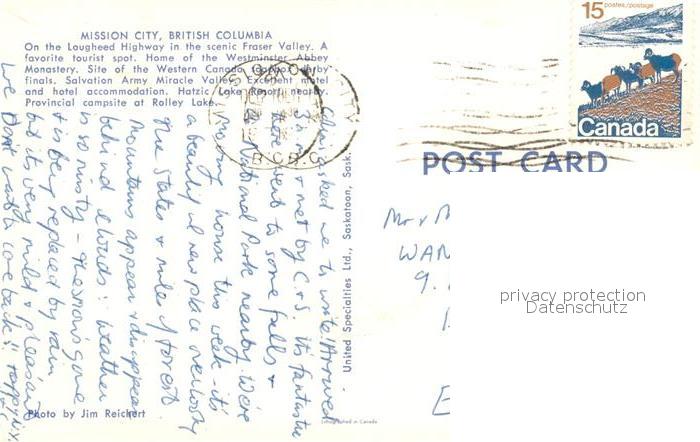 MISSION CITY, BRITISH COLUMBIA
On the Lougheed Highway in the scenic Fraser Valley. A
favorite tourist spot. Home of the Westminster Abbey
Monastery. Site of the Western Canada soapbox derby
finals. Salvation Army Miracle Valley. Excellent motel
and hotel accommodation. Hatzic Lake Resort nearby.
Provincial campsite at Rolley Lake.
asked me to write! Arrived
& met by C & S. It's fantastic
here. went to some falls &
National Park nearby. We're
moving house this week - it's
a beautiful new place overlooking
the States & miles of forest.
Mountains appear & disappear
behind clouds. Weather
is so misty - the snow's gone
& is being replaced by rain
but its very mild & pleasant
Don't want to come back!!
Photo by Jim Reichert
United Specialties Ltd., Saskatoon, Sask.
Lithographed in Canada
B.C.
15 postes/postage
Canada
POST CARD
Mr & M
WAN
9.
E
privacy protection
Datenschutz